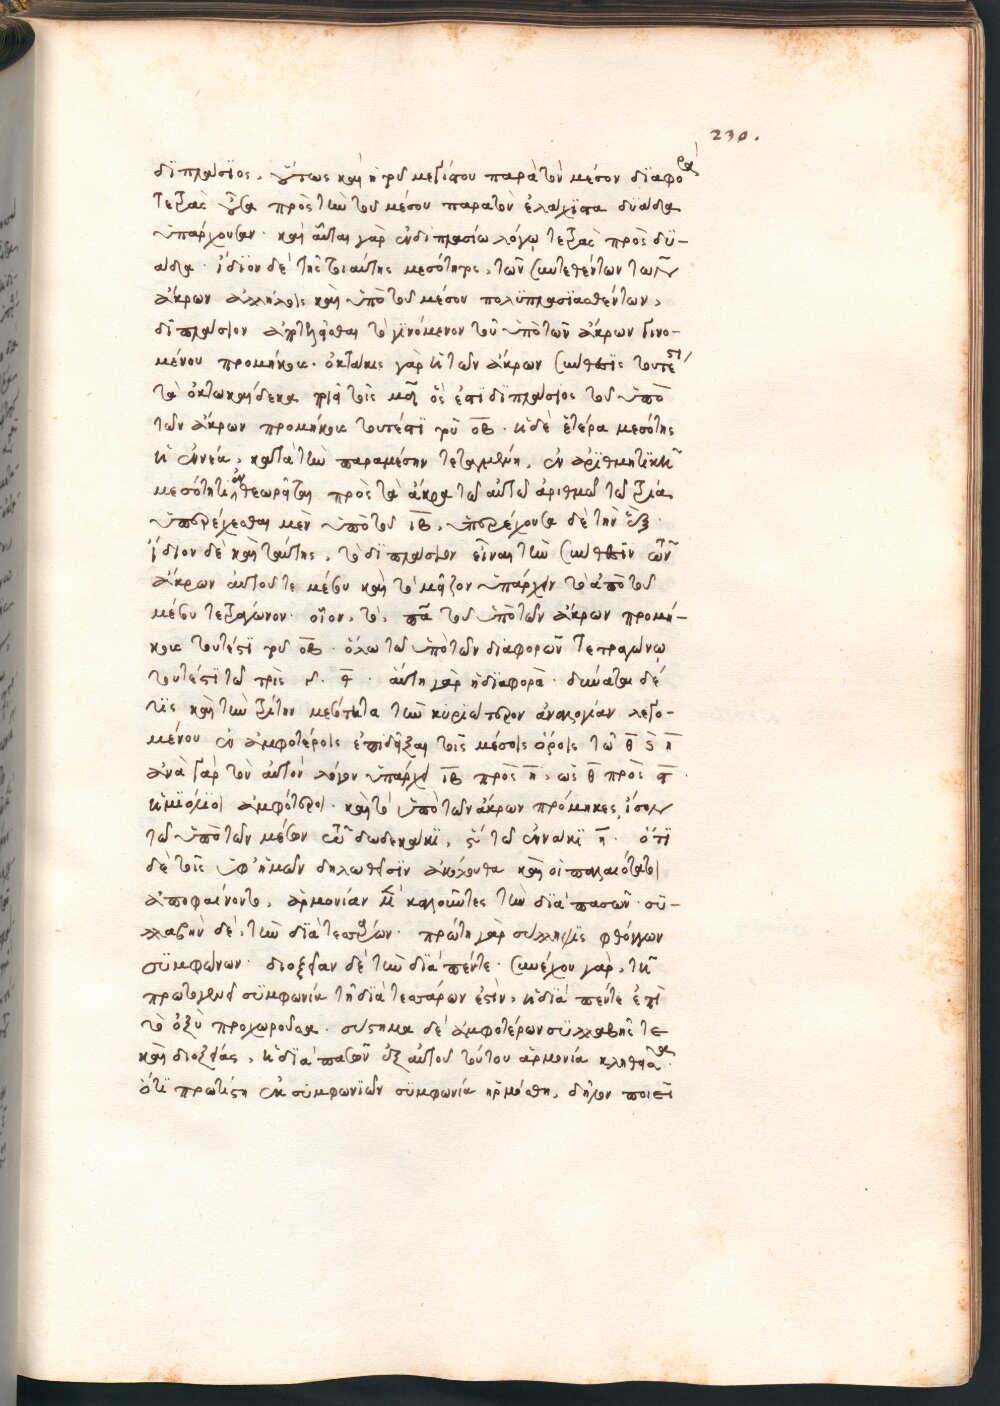 230.
διπλάσιος, οὕτως καὶ ἡ τοῦ μεγίστου παρὰ τὸν μέσον διαφορὰ
τετρὰς οὖσα πρὸς τὴν τοῦ μέσου παρὰ τὸν ἐλάχιστα δυάδα
ὑπάρχουσαν. καὶ αὗται γὰρ ἐν διπλασίω λόγω τετρὰς πρὸς δυ-
άδα. ἴδιον δὲ τῆς τοιαύτης μεσότητος, τῶν συντεθέντων τῶν
ἄκρων ἀλλήλοις καὶ ὑπὸ τοῦ μέσου πολυπλασιασθέντων,
διπλάσιον τὸ γινόμενον τοῦ ὑπὸ τῶν ἄκρων γινο-
μένου προμήκους. ὀκτάκις γὰρ ἡ τῶν ἄκρων σύνθεσις τουτέστι
τὰ ὀκτωκαίδεκα ὅς ἐστι διπλάσιος τοῦ ὑπὸ
τῶν ἄκρων προμήκους τουτέστι τοῦ οβ. ἡ δὲ ἑτέρα μεσότης
ἡ ἐννέα, κατὰ τὴν παραμέσην τεταγμένη, ἐν ἀριθμητικῆ
μεσότητι ὂν θεωρῆται πρὸς τὰ ἄκρα τῶ αὐτῶ ἀριθμῶ τῶ τρία
ὑπερέχεσθαι μὲν ὑπὸ τοῦ ιβ, ὑπερέχουσα δὲ τὴν ἓξ.
ἴδιον δὲ καὶ ταύτης, τὸ διπλάσιον εἶναι τὴν σύνθεσιν τῶν
ἄκρων αὐτοῦ τε μέσου καὶ τὸ μεῖζον ὑπάρχειν τὸ ἀπὸ τοῦ
μέσου τετράγωνον. οἷον, τὸ, πα τοῦ ὑπὸ τῶν ἄκρων προμή-
κους τουτέστι τοῦ οβ. ὅλω τῶ ὑπὸ τῶν διαφορῶν τετραγώνω
τουτέστι τῶ τρὶς γ. θ. αὕτη γὰρ ἡ διαφορά. δύναται δέ
τις καὶ τὴν τρίτην μεσότητα τὴν κυριώτερον ἀναλογίαν λεγο-
μένου ἐν ἀμφοτέροις ἐπιδεῖξαι τοῖς μέσοις ὅροις τῶ θ ϛ η
ἀνὰ γὰρ τὸν αὐτὸν λόγον ὑπάρχει ιβ πρὸς η, ὡς θ πρὸς ϛ.
ἡμιόλιοι ἀμφότεροι. καὶ τὸ ὑπὸ τῶν ἄκρων πρόμηκες, ἴσον
τῶ ὑπὸ τῶν μέσων δωδεκάκι, ϛ τῶ ἐννάκι η. ὅτι
δὲ τοῖς ὑφ' ἡμῶν δηλωθεῖσιν ἀκόλουθα καὶ οἱ παλαιότατοι
ἀπεφαίνοντο, ἁρμονίαν μὲν καλοῦντες τὴν διὰ πασῶν. συ-
λλαβὴν δὲ, τὴν διὰ τεσσάρων. πρώτη γὰρ σύλληψις φθόγγων
συμφώνων. διοξεῖαν δὲ τὴν διὰ πέντε. συνέχου γὰρ, τῆ
πρωτογενεῖ συμφωνία τῆ διὰ τεσσάρων ἐστὶν, ἡ διὰ πέντε ἐπὶ
τὸ ὀξὺ προχωροῦσα. σύστημα δὲ ἀμφοτέρων συλλαβῆς τε
καὶ διοξείας, ἡ διὰ πασῶν ἐξ αὐτοῦ τούτου ἁρμονία κληθεῖσα.
ὅτι πρωτίστη ἐκ συμφωνιῶν συμφωνία ἡρμόσθη, δῆλον ποιεῖ